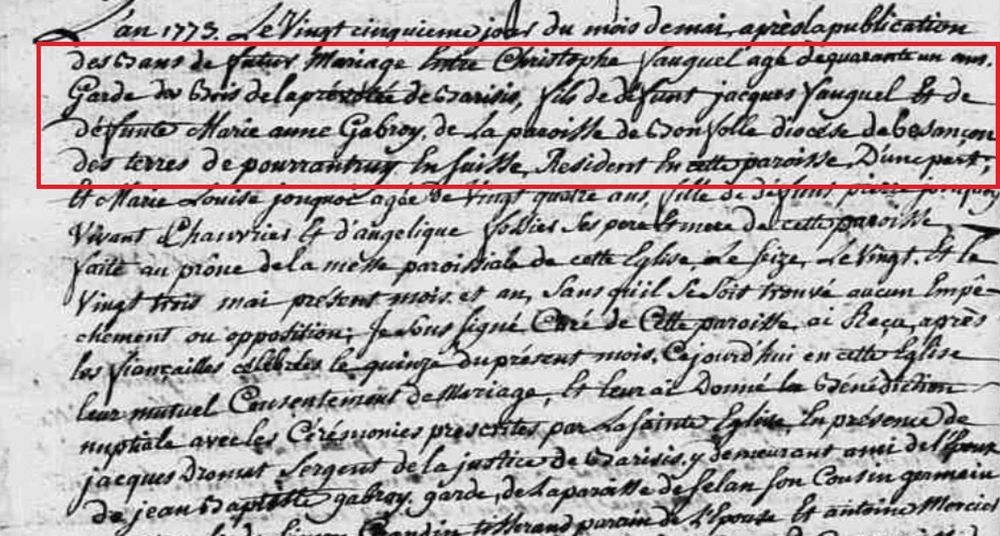 L'an 1773. Le Vingt cinquieme jour du mois de mai, après la publication
des bans de futur Mariage Entre Christophe Vauquel agé de quarante un ans.
Garde des Bois de la prévotée de Barisis, fils de défunt jacques Vauquel Et de
défunte Marie anne Gabroy, de La paroisse de Bonfolle diocese de besançon
des terres de pourrantruy En suisse, Resident En cette paroisse, D'une part;
Et Marie Louise jonquoé agée de Vingt quatre ans, fille de défunt pierre
Vivant Chauvries Et d'angelique follies Ses pere Et mere de cette paroisse
faite au prône de la mêsse paroissiale de cette Eglise, Le Seize, Le Vingt. Et le
Vingt trois mai présent mois. et an, Sans qu'il Se Soit trouvé aucun Empê-
chement ou opposition; Je Sous signé Curé de Cette paroisse, ai Reçu, après
les fiançailles célébrées le quinze du présent mois. Cejourd'hui en cette Eglise
leur mutuel Consentement de Mariage, Et leur ai Donné la Bénédiction
nuptiale avec les Cérémonies prescrites par La Sainte Eglise, En présence de
jacques Dromet Sergent de la justice de Barisis. y demeurant ami de l'Epoux
de jean Baptiste gabroy. garde, de La paroisse de Selan Son Cousin germain
tisserand parain de l'Epouse Et antoine Mercier